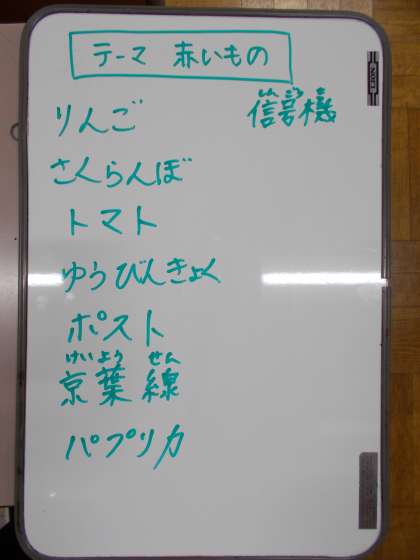 テーマ 赤いもの
りんご
さくらんぼ
トマト
ゆうびんきょく
ポスト
けいよう せん
京葉線
パプリカ
しんごうき
信号機